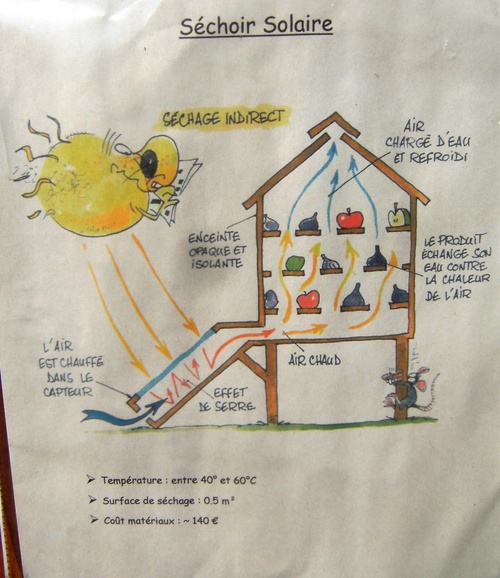 Séchoir Solaire
SÉCHAGE INDIRECT
AIR
CHARGÉ D'EAU
ET REFROIDI
ENCEINTE
OPAQUE ET
ISOLANTE
LE PRODUIT
ÉCHANGE SON
EAU CONTRE
LA CHALEUR
DE L'AIR
L'AIR
EST CHAUFFÉ
DANS LE
CAPTEUR
AIR CHAUD
EFFET
DE SERRE
➢ Température : entre 40° et 60°C
➢ Surface de séchage : 0.5 m²
➢ Coût matériaux : ~ 140 €